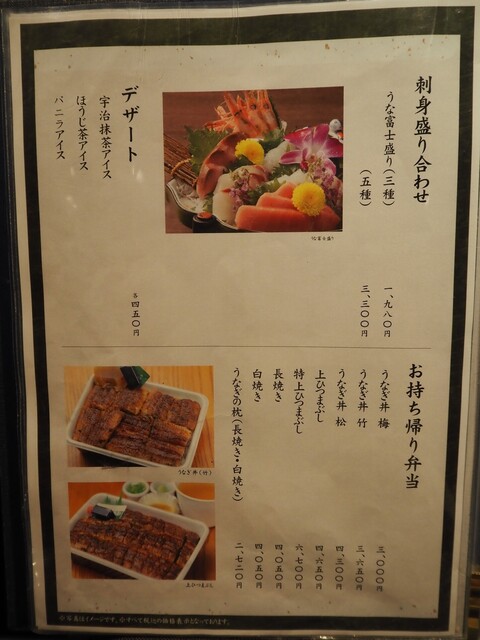 刺身盛り合わせ
うな富士盛り（三種） 一、九八〇円
（五種） 三、三〇〇円
うな富士盛り
デザート
宇治抹茶アイス
ほうじ茶アイス
バニラアイス
各 四五〇円
お持ち帰り弁当
うなぎ丼 梅 三、〇〇〇円
うなぎ丼 竹 三、六五〇円
うなぎ丼 松 四、三〇〇円
上ひつまぶし 四、六五〇円
特上ひつまぶし 六、七〇〇円
長焼き 四、〇五〇円
白焼き 四、〇五〇円
うなぎの枕（長焼き・白焼き） 二、七二〇円
うなぎ丼（竹）
上ひつまぶし
※写真はイメージです。※すべて税込の価格表示となっております。